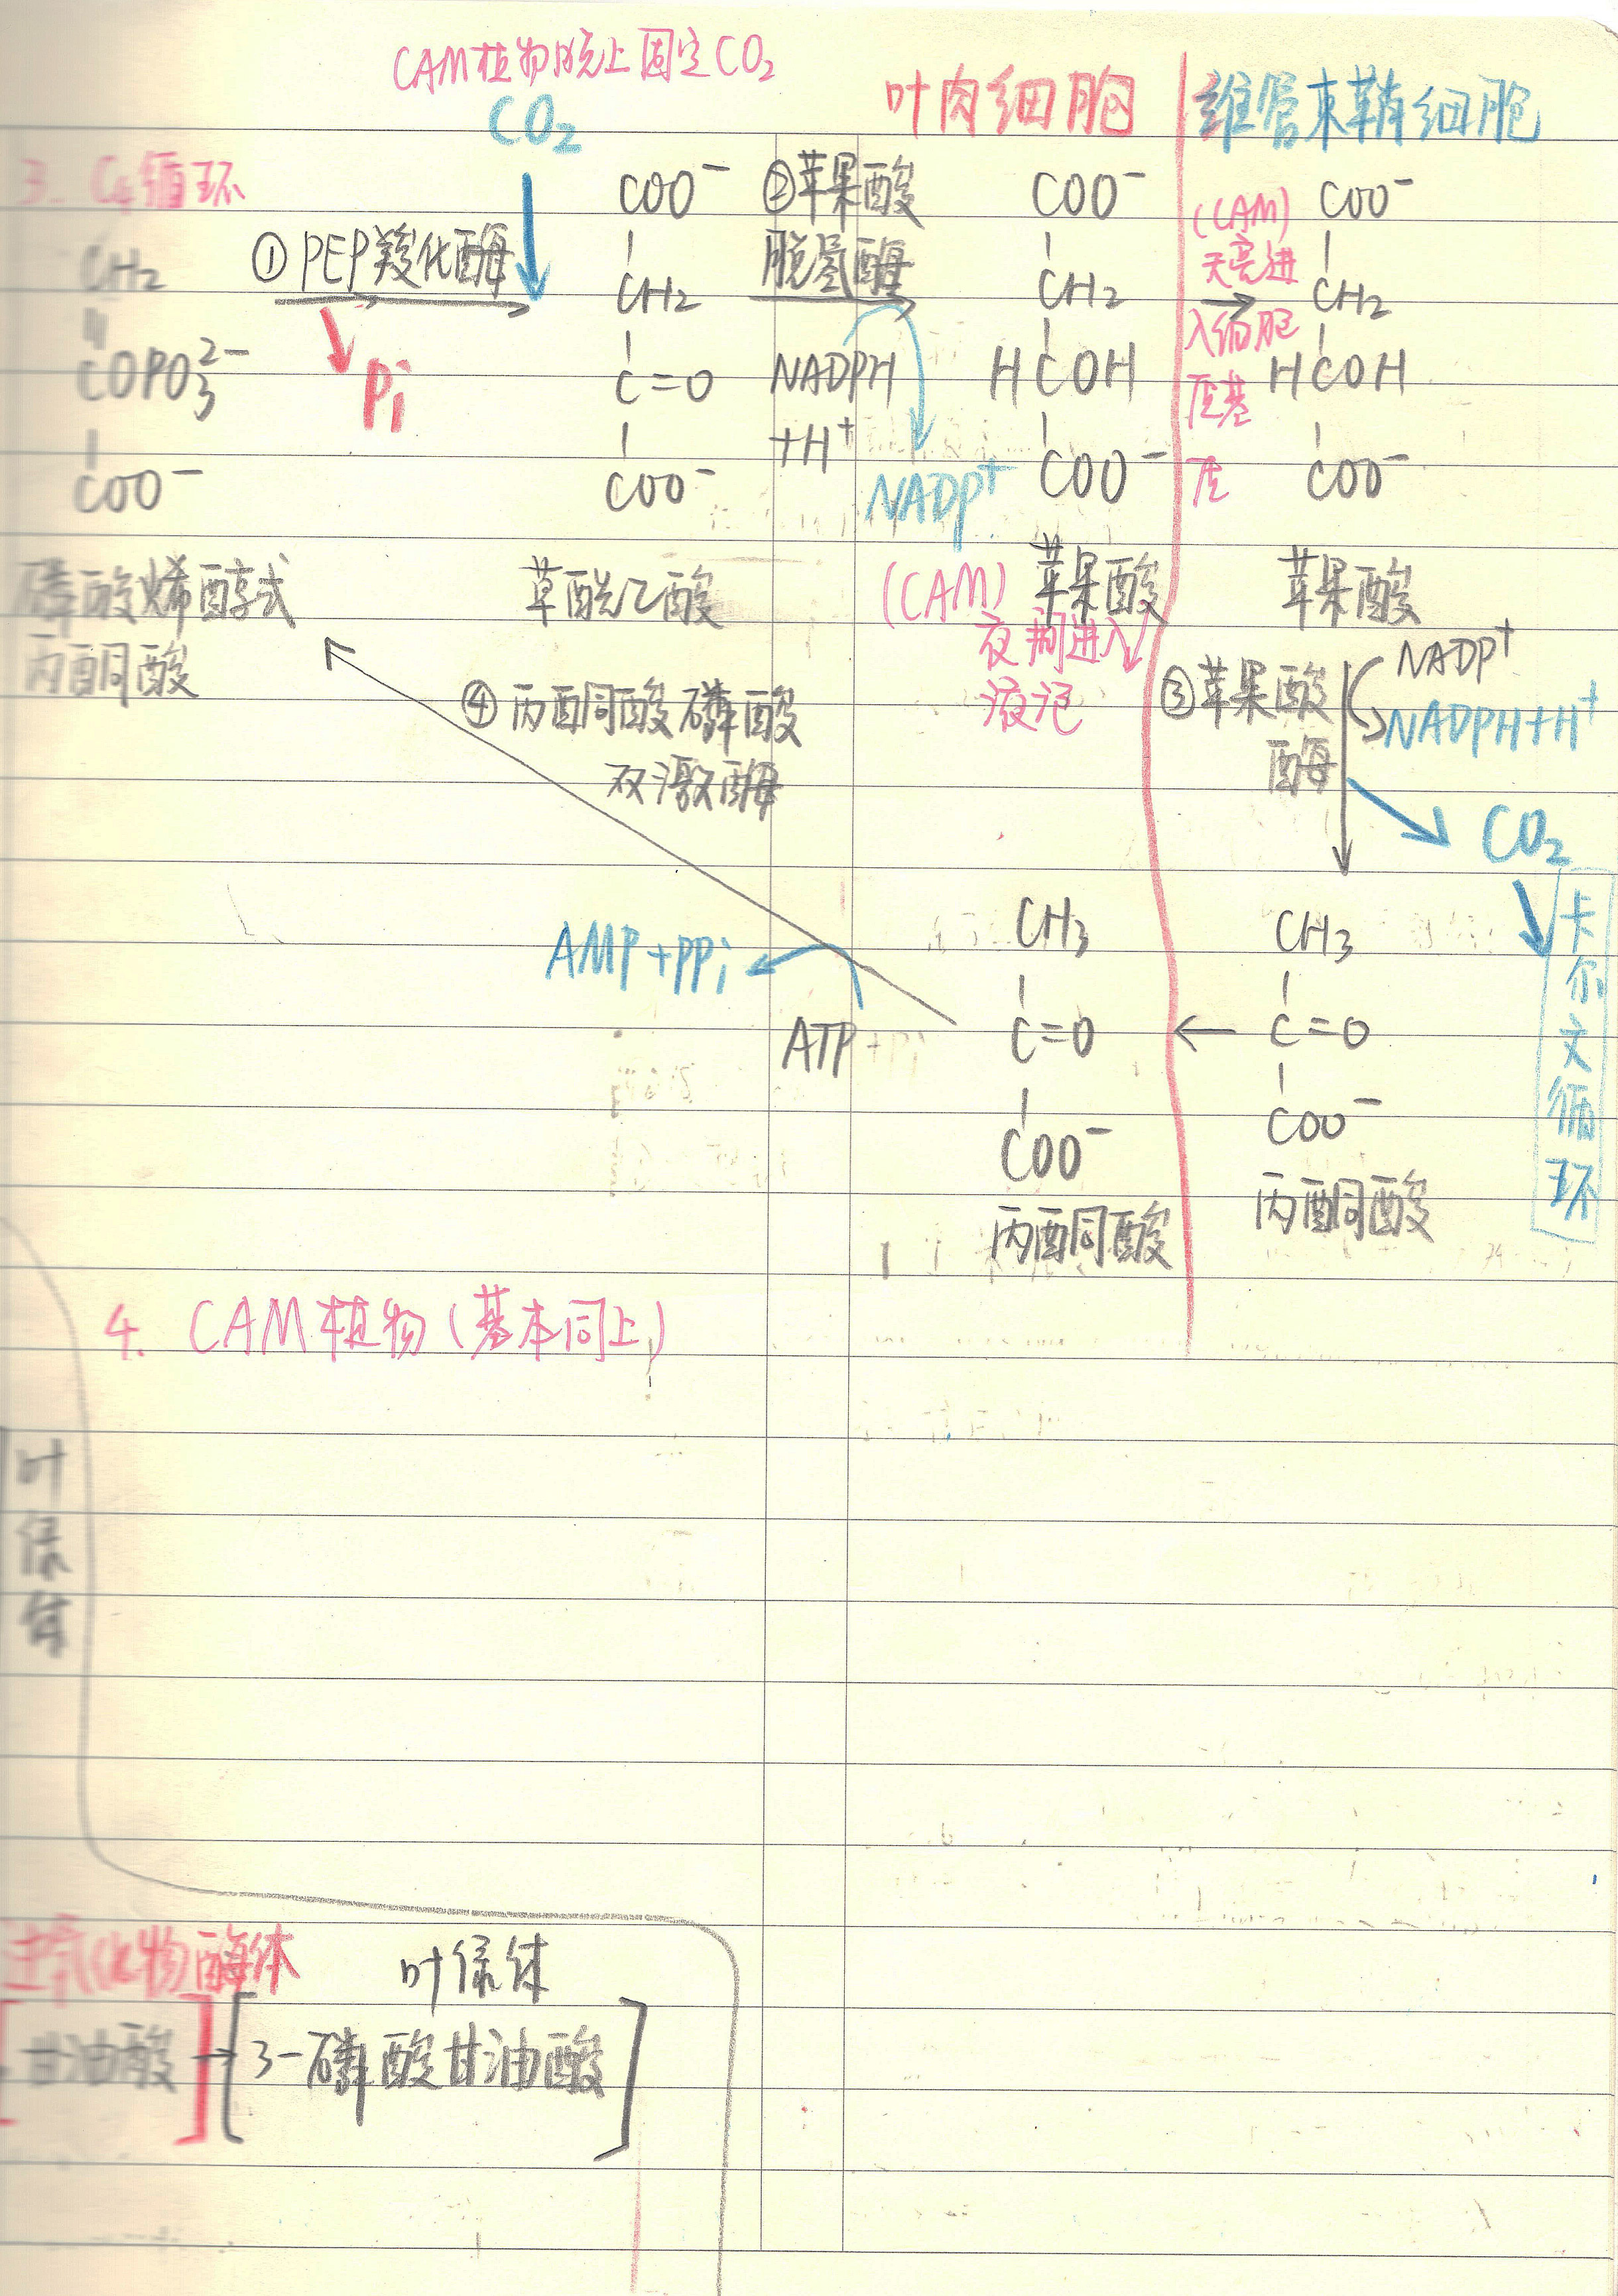 CAM植物晚上固定CO₂
CO₂
叶肉细胞
维管束鞘细胞
3. C₄循环
CH₂
||
COPO₃²⁻
|
COO⁻
磷酸烯醇式
丙酮酸
① PEP羧化酶
Pi
COO⁻
|
CH₂
|
C=O
|
COO⁻
草酰乙酸
②苹果酸
脱氢酶
NADPH
+H⁺
NADP⁺
COO⁻
|
CH₂
|
HCOH
|
COO⁻
苹果酸
(CAM)
夜间进入
液泡
(CAM)
天亮进
入细胞
质基
质
COO⁻
|
CH₂
|
HCOH
|
COO⁻
苹果酸
③苹果酸
酶
NADP⁺
NADPH+H⁺
CO₂
卡尔文循环
④丙酮酸磷酸
双激酶
AMP+PPi
ATP+Pi
CH₃
|
C=O
|
COO⁻
丙酮酸
CH₃
|
C=O
|
COO⁻
丙酮酸
4. CAM植物(基本同上)
叶绿体
过氧化物酶体
叶绿体
甘油酸]→[3-磷酸甘油酸]